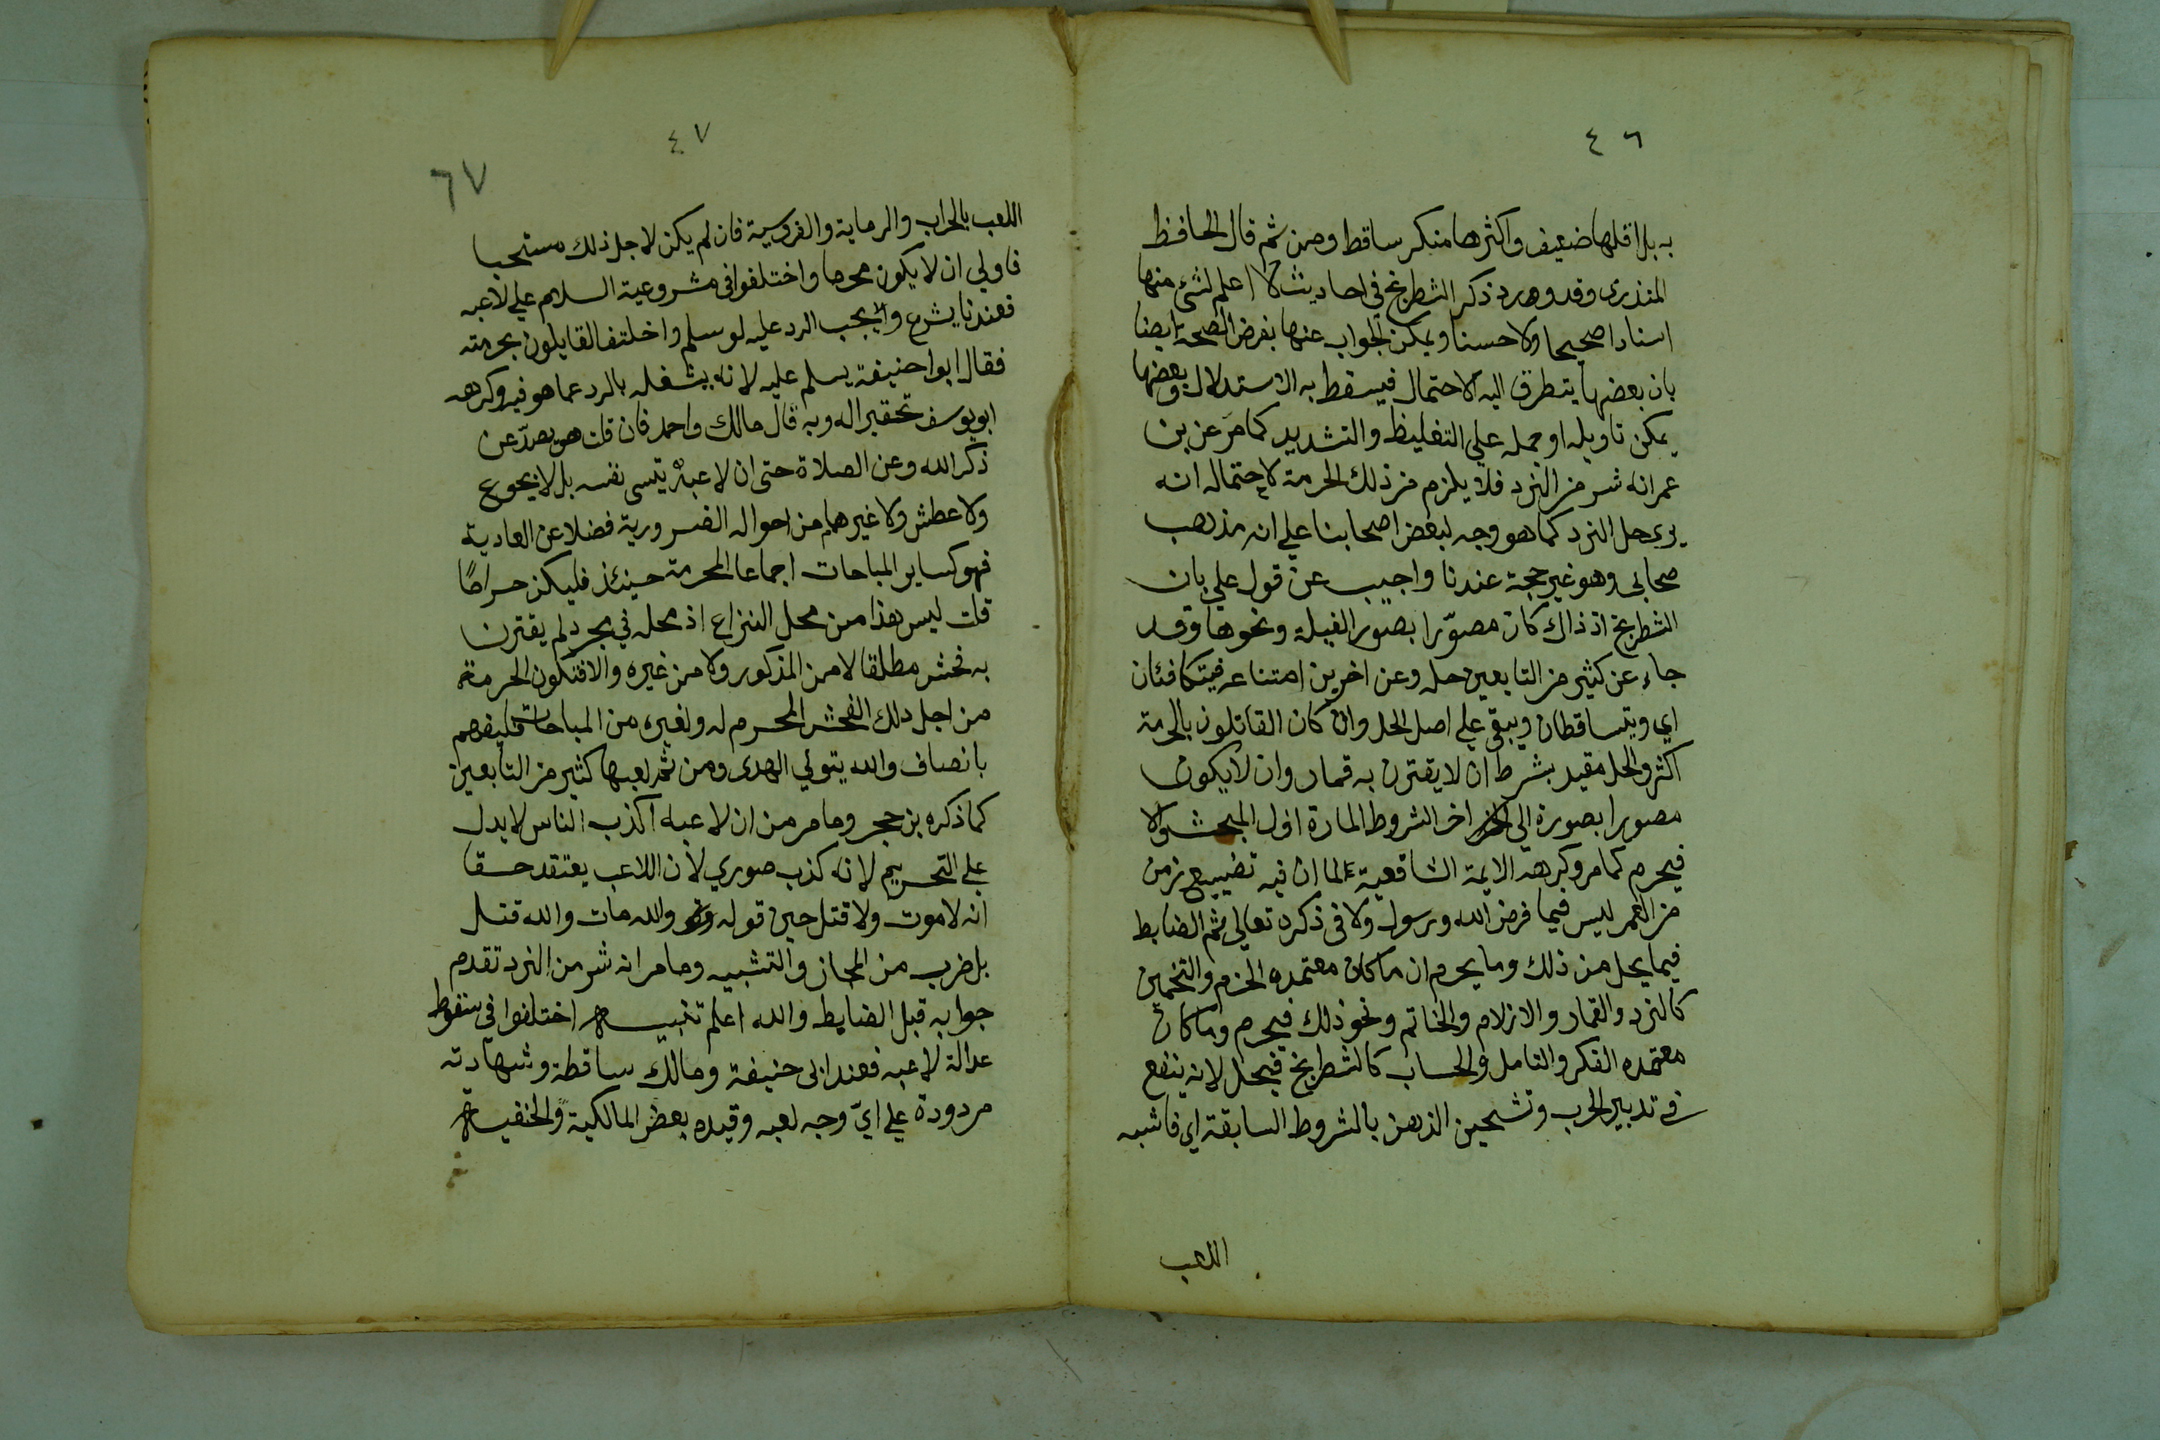 ٤٦
به بل اقلها ضعيف واكثرها منكر ساقط ومن ثم قال الحافظ
المنذرى وقد ورد ذكر الشطرنج في احاديث لا اعلم لشئ منها
اسنادا صحيحا ولا حسنا ويمكن الجواب عنها بفرض الصحة ايضا
بان بعضها يتطرق اليه الاحتمال فيسقط به الاستدلال وبعضها
يمكن تاويله او حمله علي التغليظ والتشديد كما مرّ عن بن
عمر انه شر من النرد فلا يلزم من ذلك الحرمة لاحتماله انه
يرى حل النرد كما هو وجه لبعض اصحابنا علي انه مذهب
صحابى وهو غير حجة عندنا واجيب عن قول علي بان
الشطرنج اذ ذاك كان مصوّرا بصور الفيلة ونحوها وقد
جاء عن كثير من التابعين حله وعن اخرين امتناعه فيتكافئان
اي ويتساقطان ويبقى على اصل الحل وان كان القائلون بالحرمة
اكثر والحل مقيد بشرط ان لا يقترن به قمار وان لا يكون
مصورا بصورة الى اخر الشروط المارة اول المبحث والا
فيحرم كما مر وكرهه الايمة الشافعية لما ان فيه تضييع زمن
من العمر ليس فيما فرض الله ورسوله ولا فى ذكره تعالى ثم الضابط
فيما يحل من ذلك وما يحرم ان ما كان معتمده الحزم والتخمين
كالنرد والقمار والازلام والخاتم ونحو ذلك فيحرم وما كان
معتمده الفكر والتامل والحساب كالشطرنج فيحل لانه ينفع
في تدبير الحرب وتشحين الذهن بالشروط السابقة اي فاشبه
اللعب
٤٧
٦٧
اللعب بالحراب والرماية والفروسية فان لم يكن لاجل ذلك مستحبا
فاولي ان لا يكون محرما واختلفوا فى مشروعية السلام علي لاعبه
فعندنا يشرع ويجب الرد عليه لو سلم واختلف القايلون بحرمته
فقال ابوا حنيفة يسلم عليه لانه يشغله بالرد عما هو فيه وكرهه
ابو يوسف تحقيرا له وبه قال مالك واحمد فان قلت هو يصدّ عن
ذكر الله وعن الصلاة حتى ان لاعبه يتسى نفسه بل لا بجوع
ولا عطش ولا غيرهما من احواله الضرورية فضلا عن العادية
فهو كساير المباحات اجماعا المحرمة حينئذ فليكن حرامًا
قلت ليس هذا من محل النزاع اذ محله في مجرد لم يقترن
به فحش مطلقا لا من المذكور ولا من غيره والا فتكون الحرمة
من اجل ذلك الفحش المحرم له ولغيره من المباحات فليفهم
بانصاف والله يتولي الهدى ومن ثم لعبها كثير من التابعين
كما ذكره بن حجر وما مر من ان لاعبه اكذب الناس لا يدل
على التحريم لانه كذب صوري لان اللاعب يعتقد حقا
انه لا موت ولا قتل حين قوله والله مات والله قتل
بل ضرب من المجاز والتشبيه وما مر انه شر من النرد تقدم
جوابه قبل الضابط والله اعلم تنبيه اختلفوا في سقوط
عدالة لاعبه فعند ابى حنيفة ومالك ساقطة وشهادته
مردودة على ايّ وجه لعبه وقيده بعض المالكية والحنفية